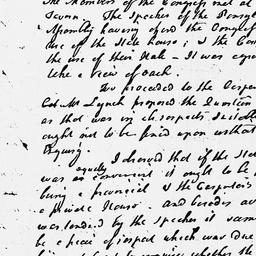 The Members of the Congress met at
Tavern. The Speaker of the Pensyl
Assembly having offerd the Congress
use of the State house; & the
the use of their Hall - It was
take a view of each.
We proceeded to the Carpen
Col. Mr Lynch proposed the Question
as that was in all respects Suitable
ought not to be fixed upon without
Enquiry.
I observed that if the State
was equally as convenient it ought to be
being a provincial & the Carpenter's
a private House. and besides as
was tenderd by the Speaker it seem
be a piece of respect which was due
whether the